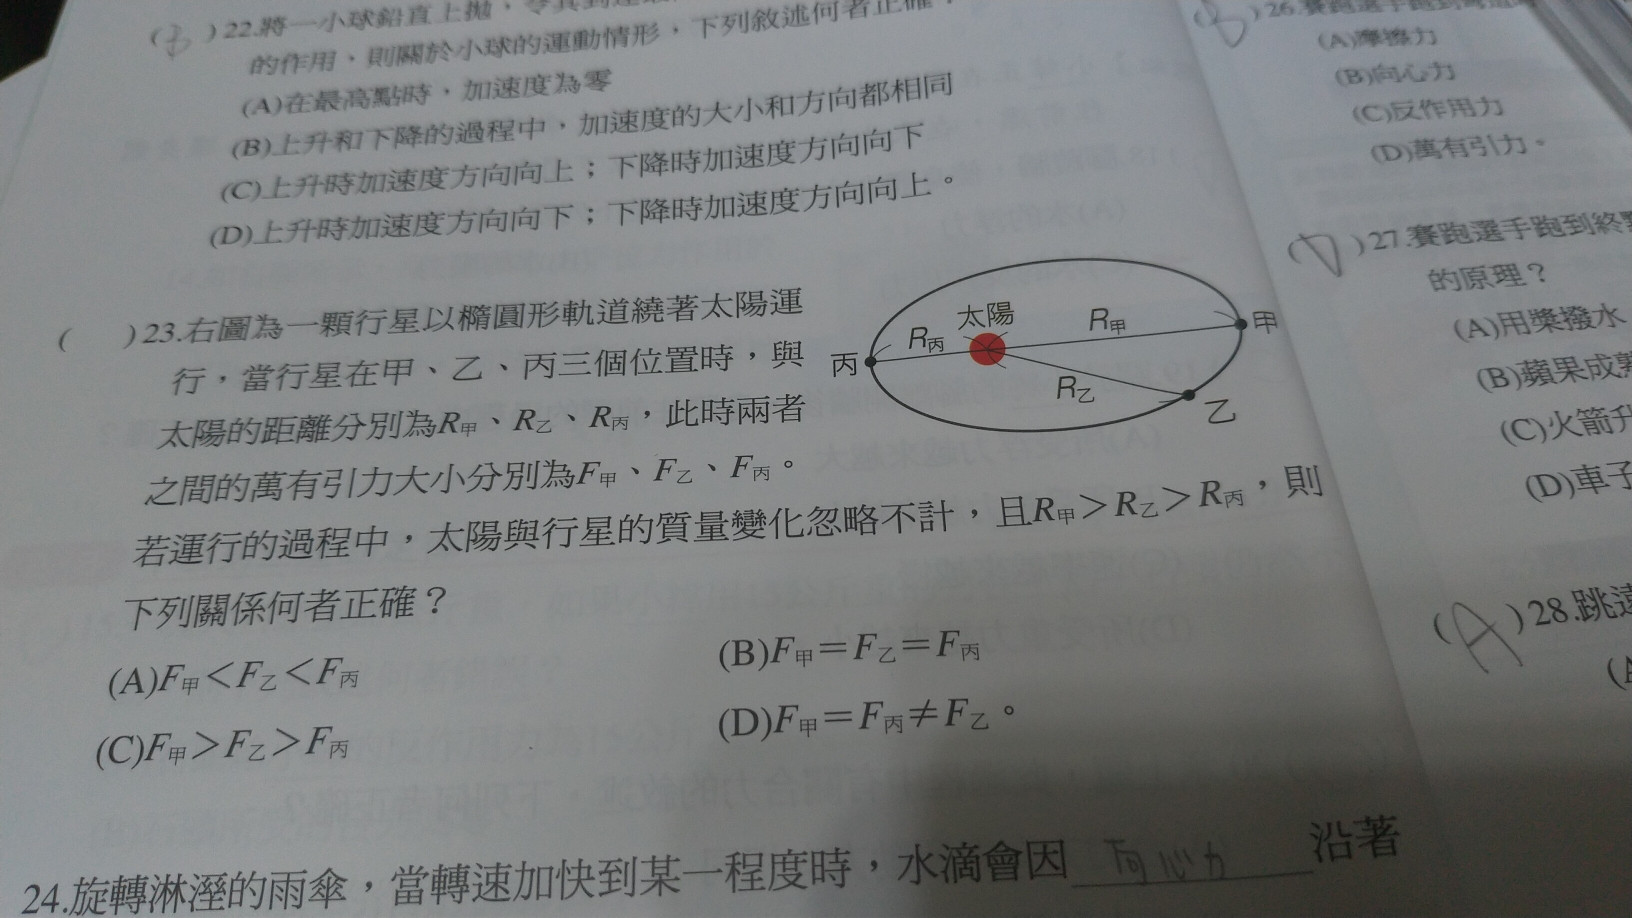 )22.將一小球鉛直上拋,
的作用,則關於小球的運動情形,下列敘述何者正確?
(A)在最高點時,加速度為零
(B)上升和下降的過程中,加速度的大小和方向都相同
(C)上升時加速度方向向上;下降時加速度方向向下
(D)上升時加速度方向向下;下降時加速度方向向上。
( )23.右圖為一顆行星以橢圓形軌道繞著太陽運
行,當行星在甲、乙、丙三個位置時,與
太陽的距離分別為R甲、R乙、R丙,此時兩者
之間的萬有引力大小分別為F甲、F乙、F丙。
若運行的過程中,太陽與行星的質量變化忽略不計,且R甲>R乙>R丙,則
下列關係何者正確?
(A)F甲<F乙<F丙
(B)F甲=F乙=F丙
(C)F甲>F乙>F丙
(D)F甲=F丙≠F乙。
太陽
R甲
R丙
R乙
甲
丙
乙
24.旋轉淋溼的雨傘,當轉速加快到某一程度時,水滴會因 向心力 沿著
)26.賽跑選手跑到
(A)摩擦力
(B)向心力
(C)反作用力
(D)萬有引力。
( D )27.賽跑選手跑到終
的原理?
(A)用槳撥水
(B)蘋果成
(C)火箭升
(D)車子
( A )28.跳遠